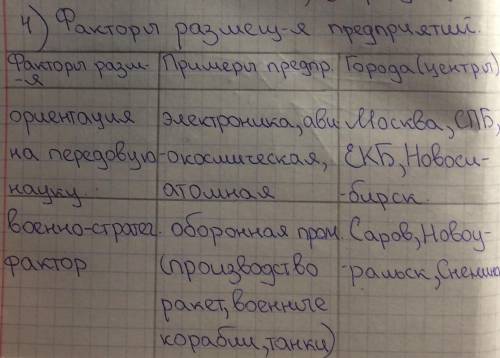 4) Факторы размещ-я предприятий.
Факторы разм-
-я
Примеры предпр.
Города (центры)
ориентация
на передовую
науку.
электроника, ави
-окосмическая,
атомная
Москва, СПБ,
ЕКБ, Новоси-
-бирск.
военно-стратег.
фактор
оборонная пром.
(производство
ракет, военные
корабли, танки)
Саров, Новоу-
-ральск,